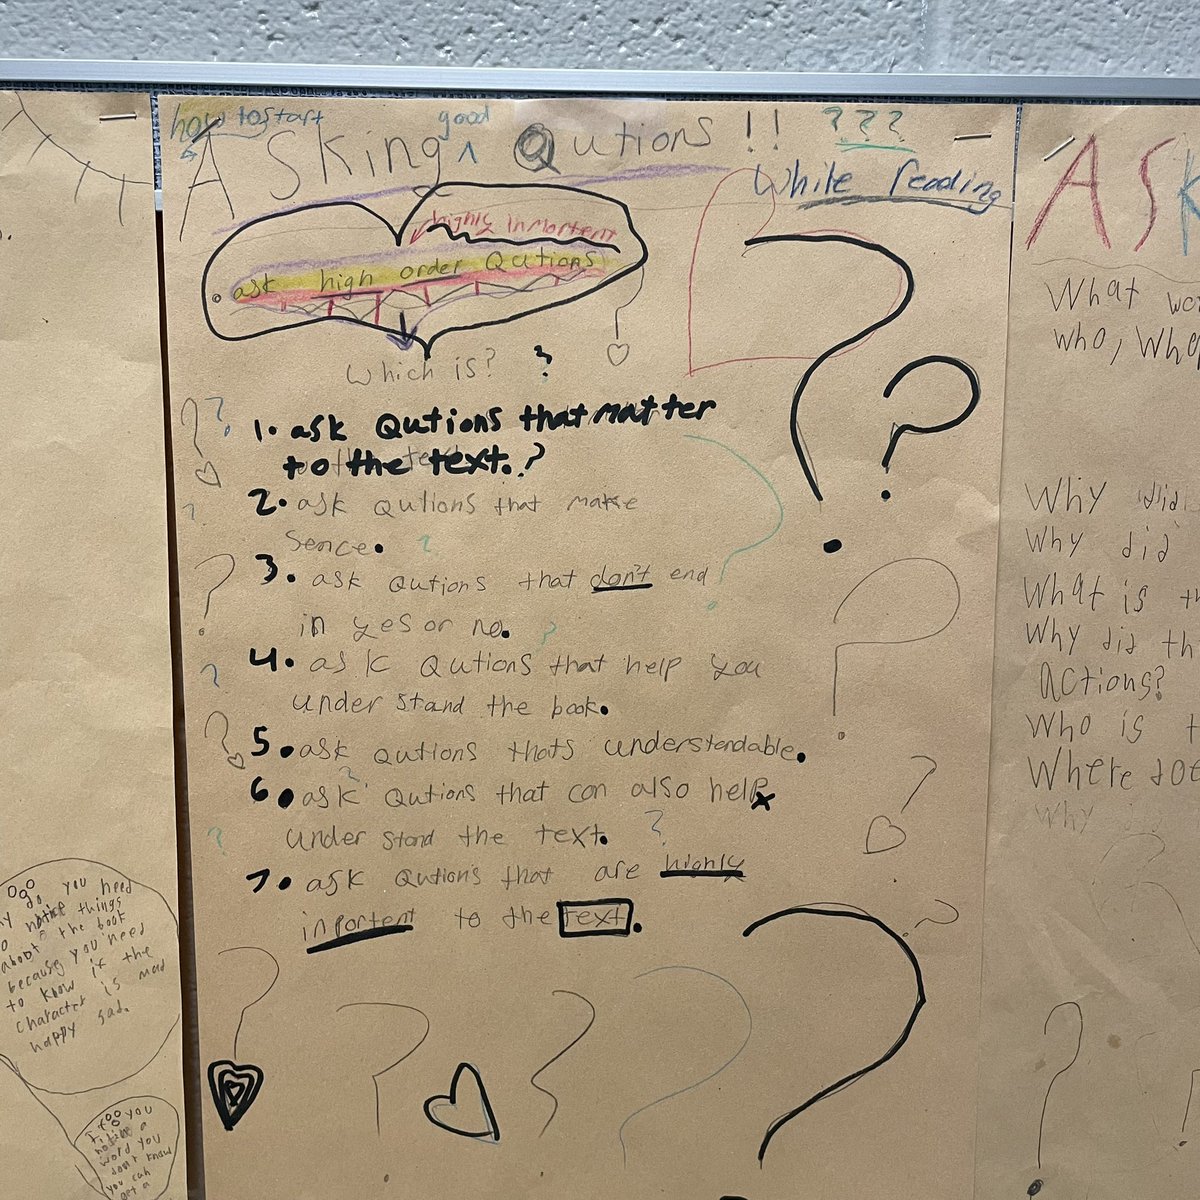 how to start
Asking good Qutions !! ???
While reading
highly inportent
ask high order Qutions
Which is? ?
1. ask Qutions that matter
to the text.?
2. ask Qutions that make
Sence. ?
3. ask Qutions that don't end
in yes or no. ?
4. ask Qutions that help you
under stand the book.
5. ask Qutions thats understandable.
6. ask Qutions that can also help
under stand the text. ?
7. ask Qutions that are highly
inportent to the text.
do you need
to notice things
about the book
because you need
to know if the
character is mad
happy sad.
If you
notice a
word you
dont know
you can
get a
Ask
What
who,
Why did
Why did
What is
Why did
actions?
Who is
Where
Why